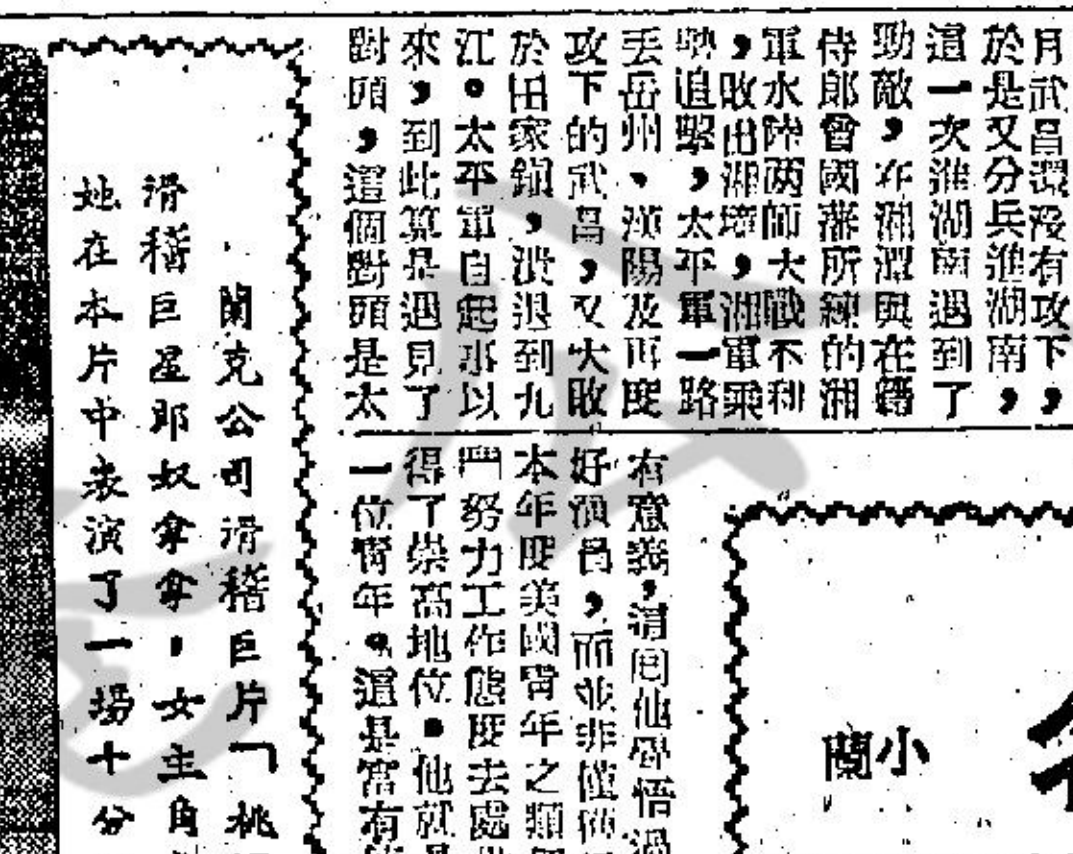 月武昌還没有攻下,
於是又分兵進湖南,
這一次進湖南遇到了
勁敵,在湘潭與在籍
侍郎曾國藩所練的湘
軍水陸两師大戰不利
,敗出湖境,湘軍乘
勝追擊,太平軍一路
丢岳州、漢陽及再度
攻下的武昌,又大敗
於田家鎮,潰退到九
江。太平軍自起事以
來,到此算是遇見了
對頭,這個對頭是太
小蘭
有意義,請囘他
悟過
好演員,而並非僅
本年度美國青年之類
鬥努力工作態度去處
得了崇高地位。他就
一位青年。這是富有
蘭克公司滑稽巨片「桃
滑稽巨星郎奴拿拿,女主角
她在本片中表演了一場十分